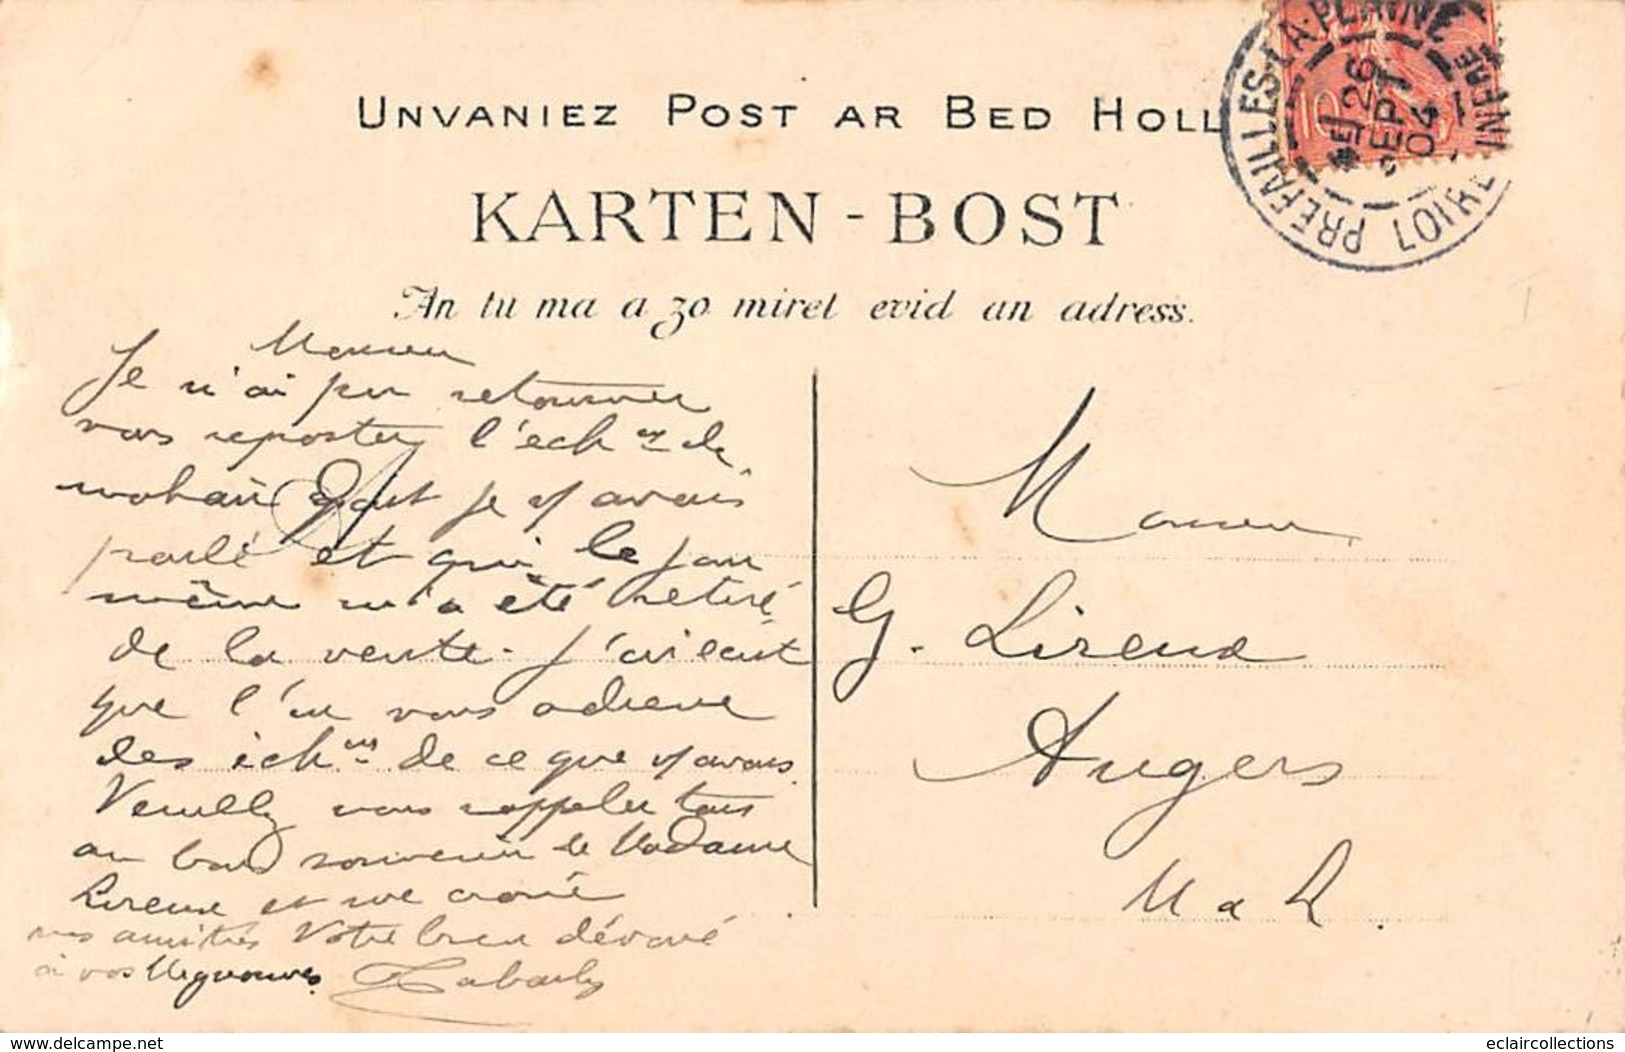 UNVANIEZ POST AR BED HOLL
KARTEN-BOST
An tu ma a zo miret evid an adress.
PREFAILLES-LA-PLAINE LOIRE INFRE
26
SEPT
04
10
Monsieur
Je n'ai pu retourner
vous reporter l'ech on de
mohair dont je v avais
parlé et qui le jour
même m'a été retiré
de la vente. J'
que l'on vous adresse
des éch ons de ce que j'avais
Veuillez vous rappeler tous
au bon souvenir de Madame
Lireux et me croire
mes amitiés Votre bien dévoué
à vos
Monsieur
G. Lireux
Angers
M & L
www.delcampe.net
eclaircollections